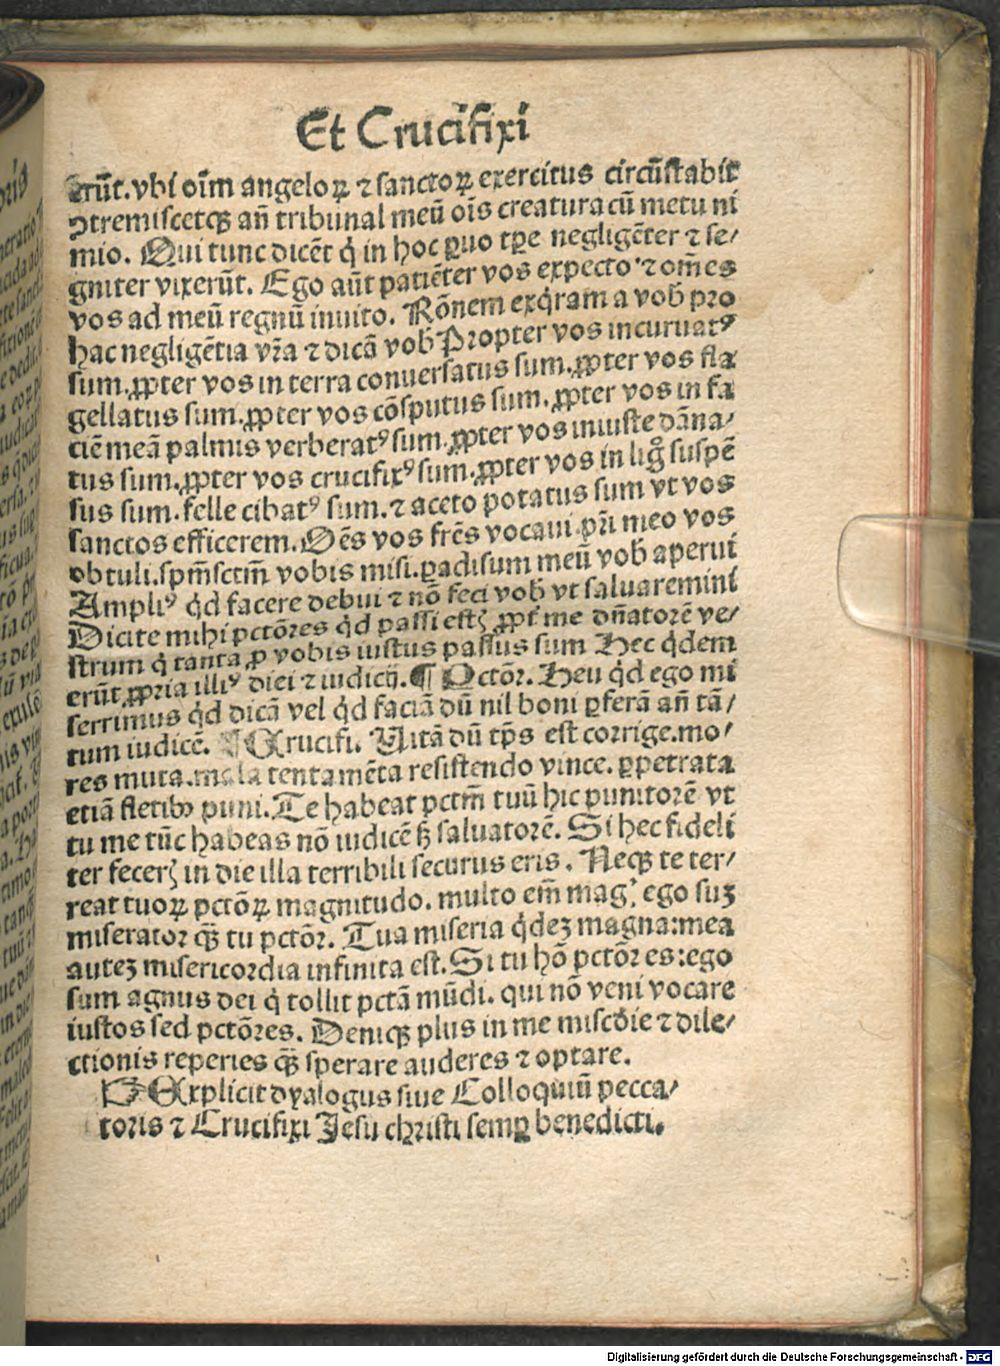 Et Crucifixi
erūt. vbi oīm angeloꝝ ⁊ sanctoꝝ exercitus circūstabit
ꝯtremiscetqꝫ an̄ tribunal meū oīs creatura cū metu ni
mio. Qui tunc dicēt q̇ in hoc ꝑuo tꝑe negligēter ⁊ se/
gniter vixerūt. Ego aūt patiēter vos expecto ⁊ om̄es
vos ad meū regnū inuito. Rōnem exq̇ram a vob̄ pro
hac negligētia vr̄a ⁊ dicā vob̄ Propter vos incuruatꝰ
sum. ꝓpter vos in terra conuersatus sum. ꝓpter vos fla
gellatus sum. ꝓpter vos cōsputus sum. ꝓpter vos in fa
ciē meā palmis verberatꝰ sum. ꝓpter vos iniuste dāna/
tus sum. ꝓpter vos crucifixꝰ sum. ꝓpter vos in lig̊ suspē
sus sum. felle cibatꝰ sum. ⁊ aceto potatus sum vt vos
sanctos efficerem. Oēs vos fr̄es vocaui. pr̄i meo vos
obtuli. spm̄sctm̄ vobis misi. ꝑadisum meū vob̄ aperui
Ampliꝰ q̇d facere debui ⁊ nō feci vob̄ vt saluaremini
Dicite mihi pctōres q̇d passi estꝭ ꝓpt̄ me dn̄atorē ve/
strum q̇ tanta ꝓ vobis iustus passus sum Hec q̇dem
erūt ꝓpria illiꝰ diei ⁊ iudicij. ¶ Pctōr. Heu q̇d ego mi
serrimus q̇d dicā vel q̇d faciā dū nil boni ꝑferā an̄ tā/
tum iudicē. ¶ Crucifi. Vitā dū tp̄s est corrige. mo/
res muta. mala tentamēta resistendo vince. ꝑpetrata
etiā fletibꝰ puni. Te habeat pctm̄ tuū hic punitorē vt
tu me tūc habeas nō iudicē sꝫ saluatorē. Si hec fideli
ter fecerꝭ in die illa terribili securus eris. Neqꝫ te ter/
reat tuoꝝ pctōꝝ magnitudo. multo em̄ magꝭ ego suꝫ
miserator qꝫ̄ tu pctōr. Tua miseria q̇deꝫ magna: mea
auteꝫ misericordia infinita est. Si tu hō pctōr es: ego
sum agnus dei q̇ tollit pctā mūdi. qui nō veni vocare
iustos sed pctōres. Deniqꝫ plus in me miscōie ⁊ dile/
ctionis reperies qꝫ̄ sperare auderes ⁊ optare.
☞ Explicit dyalogus siue Colloquiū pecca/
toris ⁊ Crucifixi Jesu christi semꝑ benedicti.
Digitalisierung gefördert durch die Deutsche Forschungsgemeinschaft - DFG